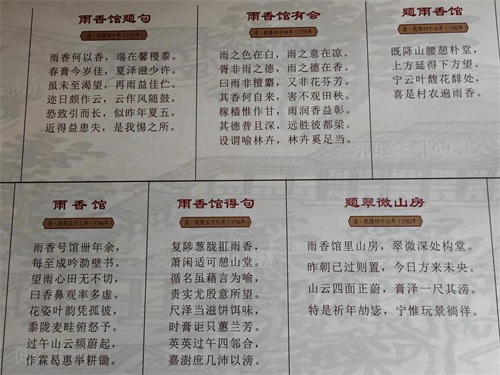 雨香馆题句
清·乾隆四十年(1775年)
雨香何以香，端在馨稷黍。
春膏今岁佳，夏泽滋少许。
虽未至渴望，再雨益佳伫。
迩日颇作云，云作风随鼓。
恐致引而长，似昨年夏五。
近得益患失，是我惕之所。
雨香馆有会
清·乾隆四十四年(1779年)
雨之色在白，雨之意在凉。
胥非雨之德，雨之德在香。
曰雨非檀麝，又非花芬芳。
其香何自来，害不观田秧。
稼穑惟作甘，雨润香益彰。
其德普且深，远胜彼都梁。
设谓喻林卉，林卉奚足当。
题雨香馆
清·乾隆四十七年(1782年)
既降山腰憩朴堂，
上方延得下方望。
宁云叶馥花馡处，
喜是村农遍雨香。
雨香馆
清·乾隆五十三年(1788年)
雨香号馆卅年余，
每至成吟泐壁书。
望雨心田无不切，
曰香鼻观率多虚。
花姿叶韵凭孤彼，
黍陇麦畦俯慰予。
过午山云频蔚起，
作霖曷惠举耕锄。
雨香馆得句
清·乾隆五十九年(1794年)
复陟葱胧瓨雨香，
萧闲适可憩山堂。
循名虽藉言为喻，
责实尤殷意所望。
尺泽当滋饼饵味，
时膏讵只蕙兰芳。
英英过午四邻合，
嘉澍庶几沛以滂。
题翠微山房
清·乾隆四十七年(1782年)
雨香馆里山房，翠微深处构堂。
昨朝已过则置，今日方来未央。
山云四面正蔚，膏泽一尺其滂。
特是祈年劼毖，宁惟玩景徜徉。